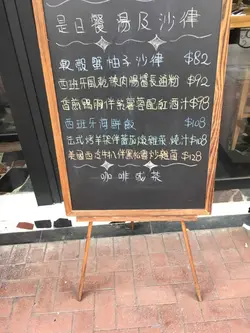 是日餐湯及沙律
軟殼蟹柚子沙律 $82
西班牙風乾辣肉腸醬長通粉 $92
香煎鴨胸伴紫薯蓉配紅酒汁 $98
西班牙海鮮飯 $108
法式烤羊架伴蕃茄燴雜菜燒汁 $128
美國西冷牛扒伴黑松露炒雜菌 $128
咖啡或茶